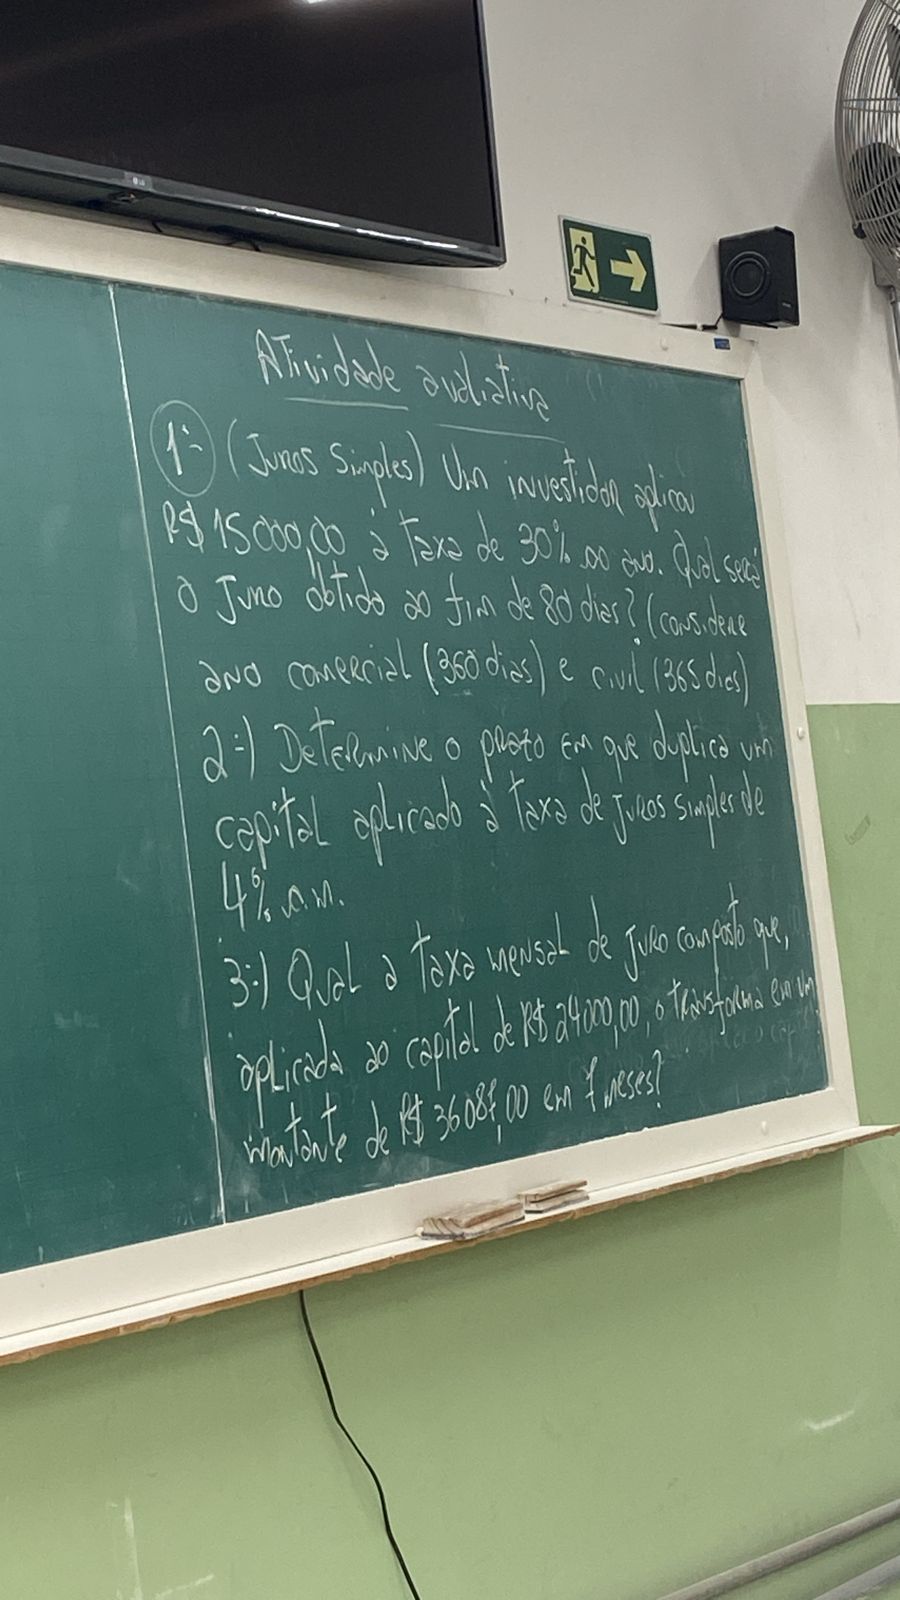 LG
Atividade avaliativa
1-) (Juros Simples) Um investidor aplicou
R$ 15000,00 à taxa de 30% ao ano. Qual será
o juro obtido ao fim de 80 dias? (considere
ano comercial (360 dias) e civil (365 dias)
2-) Determine o prazo em que duplica um
capital aplicado à taxa de juros simples de
4% a.m.
3-) Qual a taxa mensal de juro composto que,
aplicada ao capital de R$ 24000,00, o transforma em um
montante de R$ 36087,00 em 7 meses?